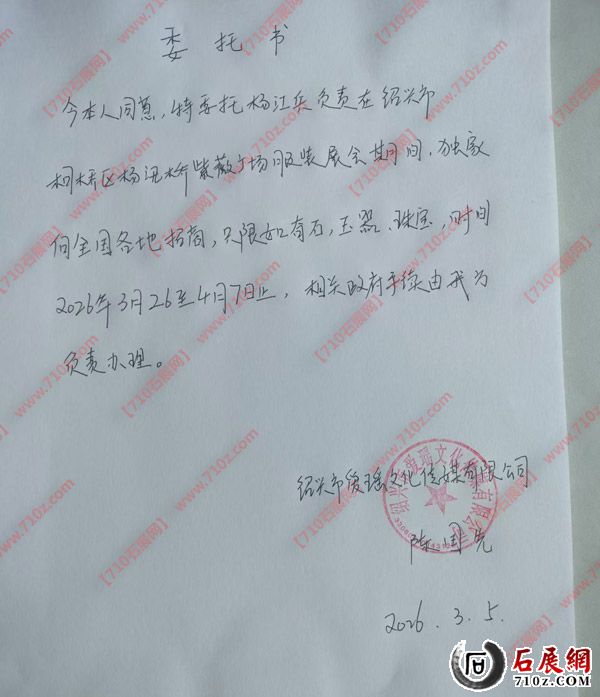 委托书
今本人同意，特委托杨江兵负责在绍兴市
柯桥区杨汛桥紫薇广场服装展会期间，独家
向全国各地招商，只限如有石，玉器、珠宝，时间
2026年3月26至4月7日止，相关政府手续由我方
负责办理。
绍兴市爱瑶文化传媒有限公司
陈国先
2026.3.5.
【710石展网】www.710z.com
石展網
710z.com